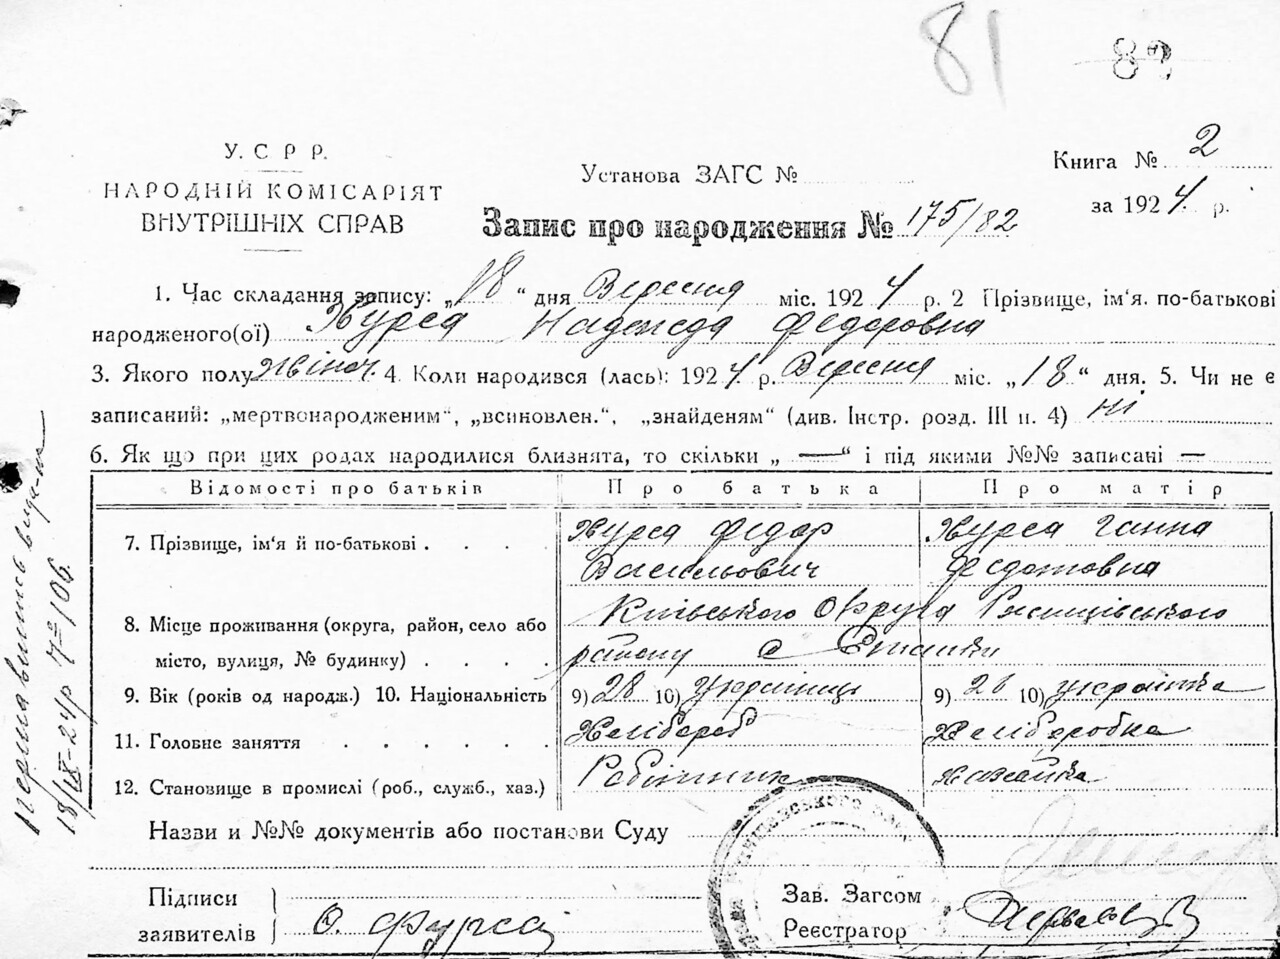 81
82
У. С Р Р.
НАРОДНІЙ КОМІСАРІЯТ
ВНУТРІШНІХ СПРАВ
Установа ЗАГС №
Книга № 2
за 1924 р.
Запис про народження № 175/82
1. Час складання запису: „18“ дня Вересня міс. 1924 р. 2 Прізвище, ім'я. по-батькові
народженого(ої) Хурса Надежда Федоровна
3. Якого полу жіноч. 4. Коли народився (лась): 1924 р. Вересня міс. „18“ дня. 5. Чи не є
записаний: „мертвонародженим“, „всиновлен.“, „знайденям“ (див. Інстр. розд. III п. 4) ні
6. Як що при цих родах народилися близнята, то скільки „ — “ і під якими №№ записані —
Відомості про батьків Про батька Про матір
7. Прізвище, ім'я й по-батькові . . . . Хурса Федор Хурса Ганна
Васильович Федотовна
8. Місце проживання (округа, район, село або Київського Округа
місто, вулиця, № будинку) . . . . району с
9. Вік (років од народж.) 10. Національність 9) 28 10) Українець 9) 26 10) українка
11. Головне заняття . . . . . . Хлібороб Хліборобка
12. Становище в промислі (роб., служб., хаз.) Робітник хазяйка
Назви и №№ документів або постанови Суду
Підписи
заявителів
Ф. Фурса
Зав. Загсом
Реєстратор
18/IX-24р № 106.